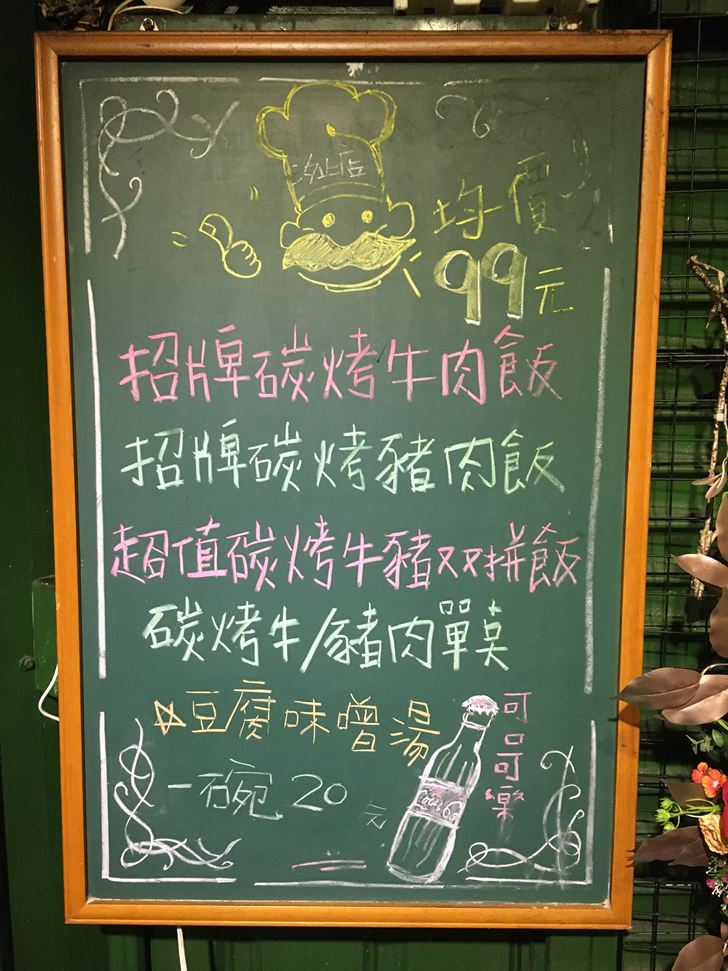 汐止店
均一價
99元
招牌碳烤牛肉飯
招牌碳烤豬肉飯
超值碳烤牛豬双拼飯
碳烤牛/豬肉單點
☆豆腐味噌湯
一碗20元
可口可樂
Coca Co